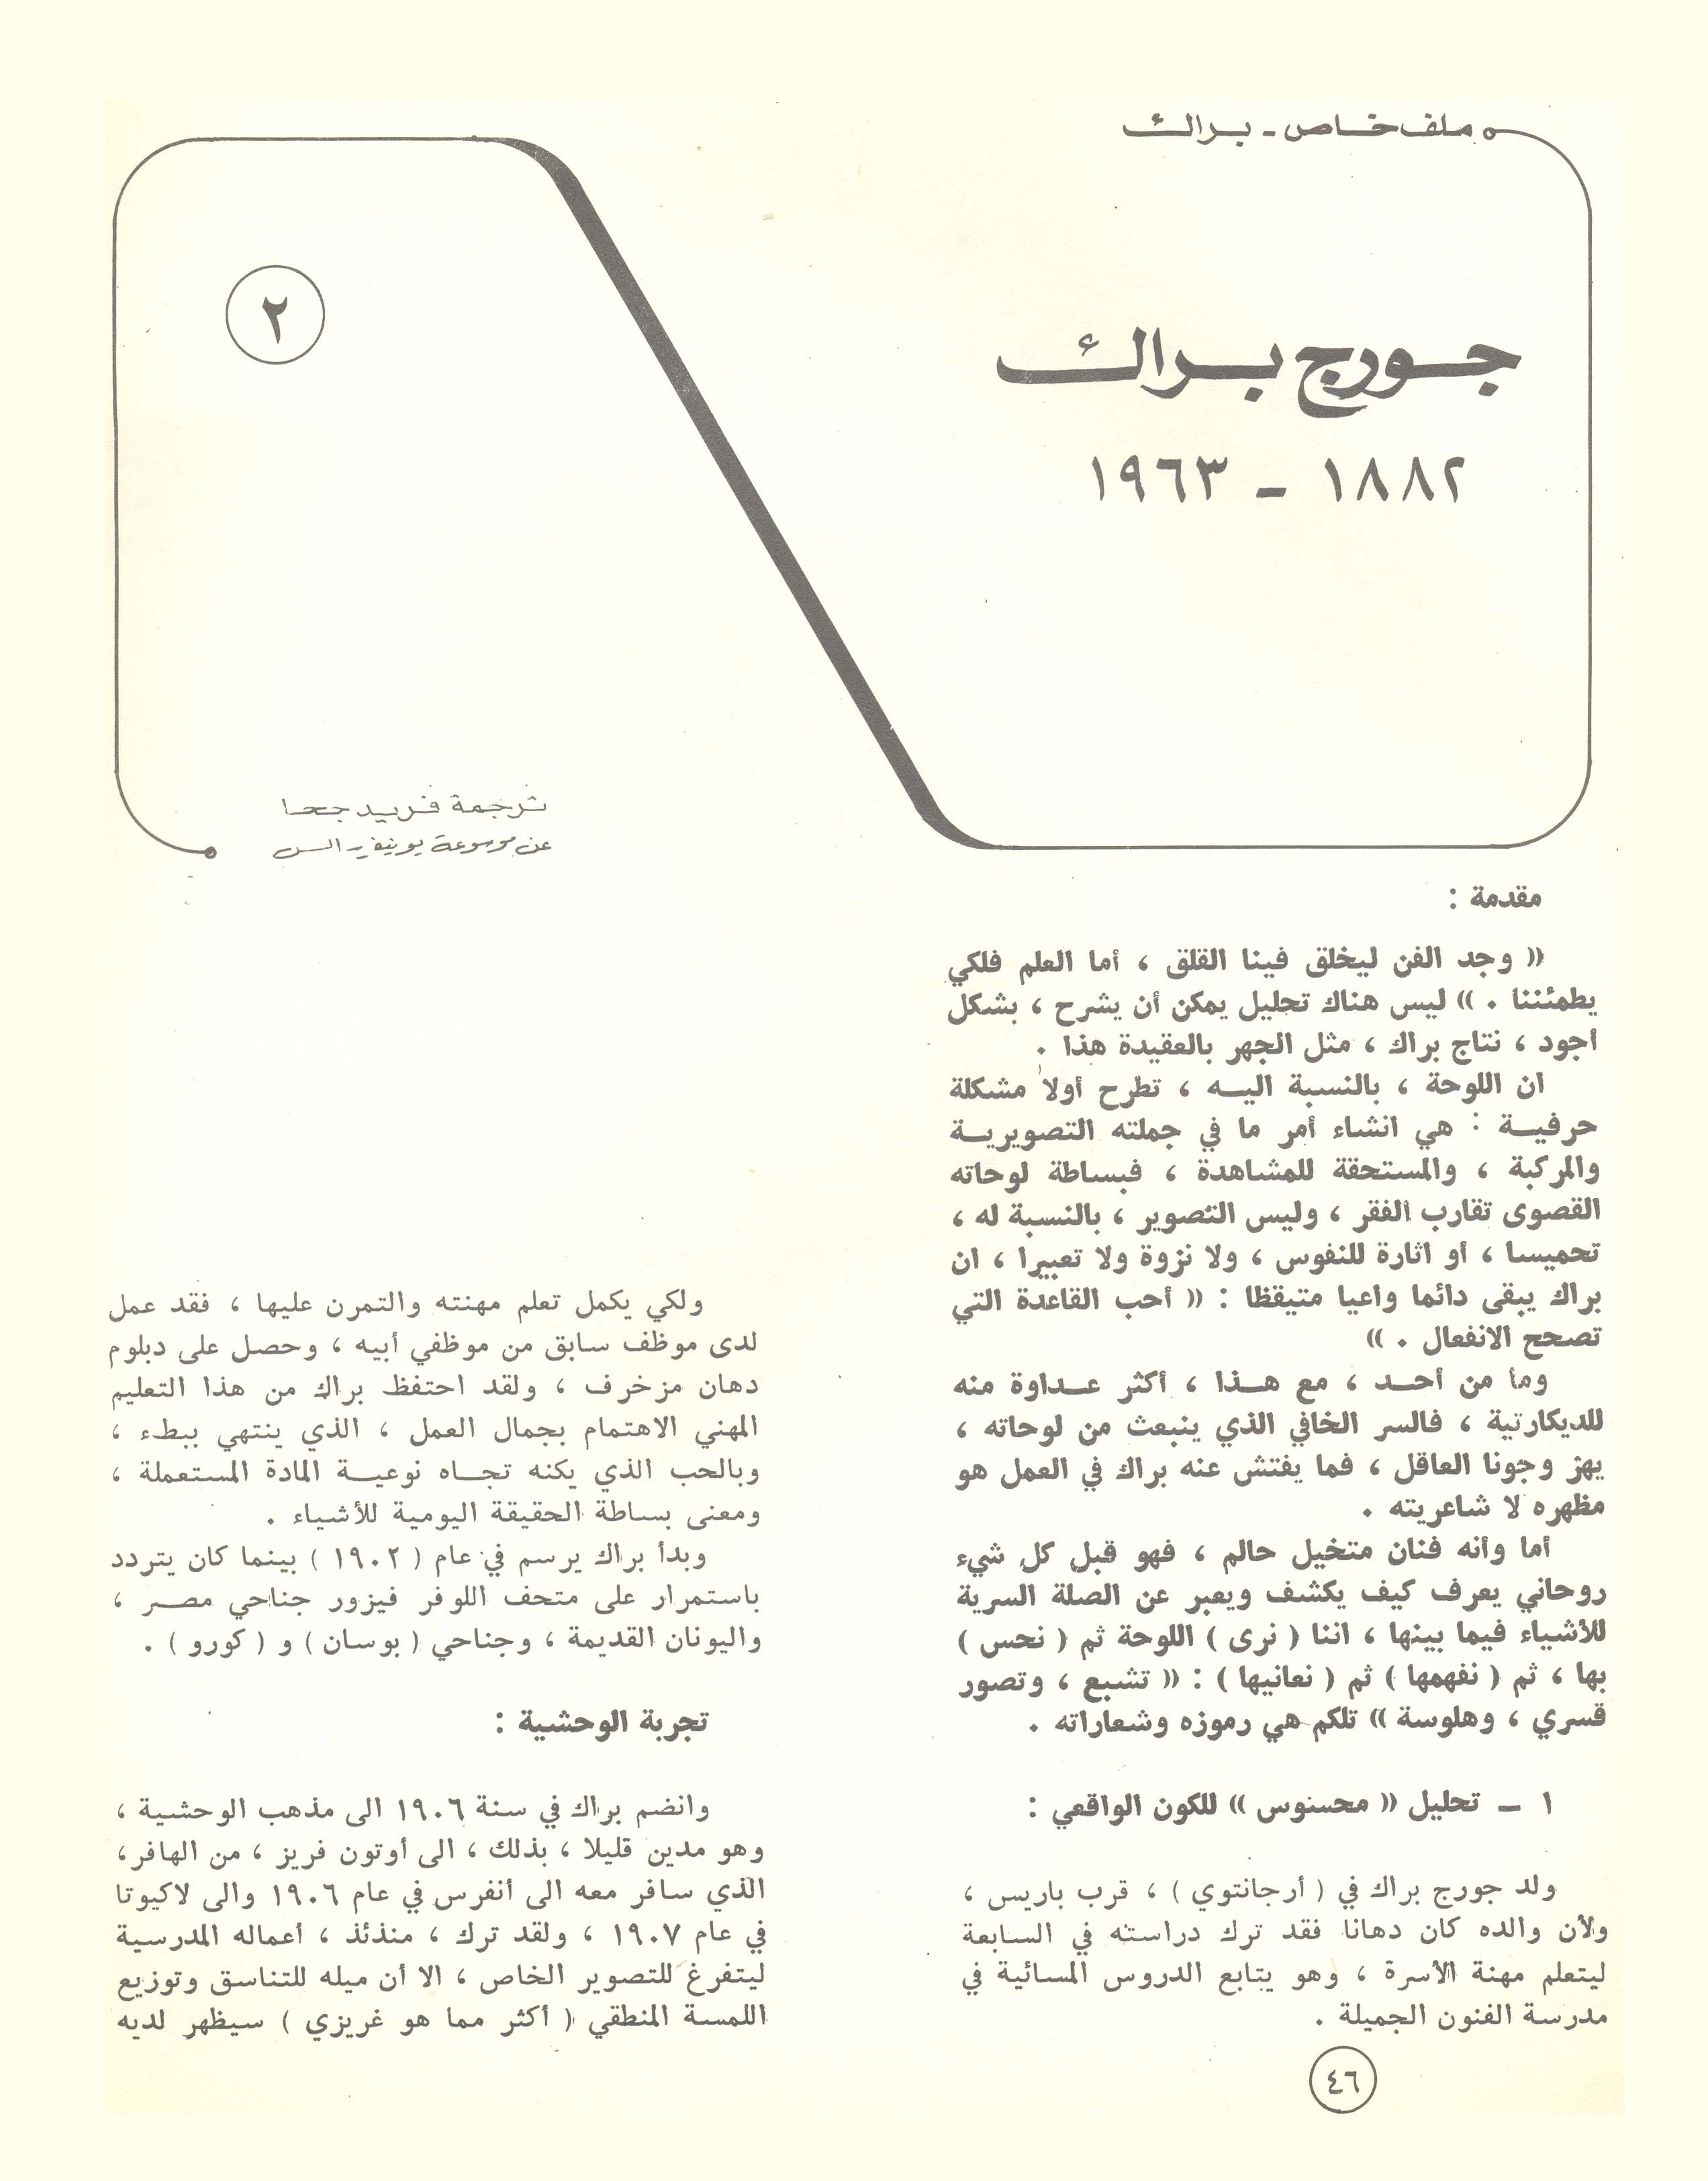 ملف خاص - براك
جورج براك
١٨٨٢ - ١٩٦٣
٢
ترجمة فريد جحا
عن موسوعة يونيفرسالس
مقدمة :
(( وجد الفن ليخلق فينا القلق ، أما العلم فلكي
يطمئننا . )) ليس هناك تحليل يمكن أن يشرح ، بشكل
أجود ، نتاج براك ، مثل الجهر بالعقيدة هذا .
ان اللوحة ، بالنسبة اليه ، تطرح أولا مشكلة
حرفية : هي انشاء أمر ما في جملته التصويرية
والمركبة ، والمستحقة للمشاهدة ، فبساطة لوحاته
القصوى تقارب الفقر ، وليس التصوير ، بالنسبة له ،
تحميسا ، أو اثارة للنفوس ، ولا نزوة ولا تعبيرا ، ان
براك يبقى دائما واعيا متيقظا : (( أحب القاعدة التي
تصحح الانفعال . ))
وما من أحد ، مع هذا ، أكثر عداوة منه
للديكارتية ، فالسر الخافي الذي ينبعث من لوحاته ،
يهز وجونا العاقل ، فما يفتش عنه براك في العمل هو
مظهره لا شاعريته .
أما وأنه فنان متخيل حالم ، فهو قبل كل شيء
روحاني يعرف كيف يكشف ويعبر عن الصلة السرية
للأشياء فيما بينها ، اننا ( نرى ) اللوحة ثم ( نحس )
بها ، ثم ( نفهمها ) ثم ( نعانيها ) : (( تشبع ، وتصور
قسري ، وهلوسة )) تلكم هي رموزه وشعاراته .
١ - تحليل (( محسنوس )) للكون الواقعي :
ولد جورج براك في ( أرجانتوي ) ، قرب باريس ،
ولأن والده كان دهانا فقد ترك دراسته في السابعة
ليتعلم مهنة الأسرة ، وهو يتابع الدروس المسائية في
مدرسة الفنون الجميلة .
ولكي يكمل تعلم مهنته والتمرن عليها ، فقد عمل
لدى موظف سابق من موظفي أبيه ، وحصل على دبلوم
دهان مزخرف ، ولقد احتفظ براك من هذا التعليم
المهني الاهتمام بجمال العمل ، الذي ينتهي ببطء ،
وبالحب الذي يكنه تجاه نوعية المادة المستعملة ،
ومعنى بساطة الحقيقة اليومية للأشياء .
وبدأ براك يرسم في عام ( ١٩٠٢ ) بينما كان يتردد
باستمرار على متحف اللوفر فيزور جناحي مصر ،
واليونان القديمة ، وجناحي ( بوسان ) و ( كورو ) .
تجربة الوحشية :
وانضم براك في سنة ١٩٠٦ الى مذهب الوحشية ،
وهو مدين قليلا ، بذلك ، الى أوتون فريز ، من الهافر ،
الذي سافر معه الى أنفرس في عام ١٩٠٦ والى لاكيوتا
في عام ١٩٠٧ ، ولقد ترك ، منذئذ ، أعماله المدرسية
ليتفرغ للتصوير الخاص ، الا أن ميله للتناسق وتوزيع
اللمسة المنطقي ( أكثر مما هو غريزي ) سيظهر لديه
٤٦